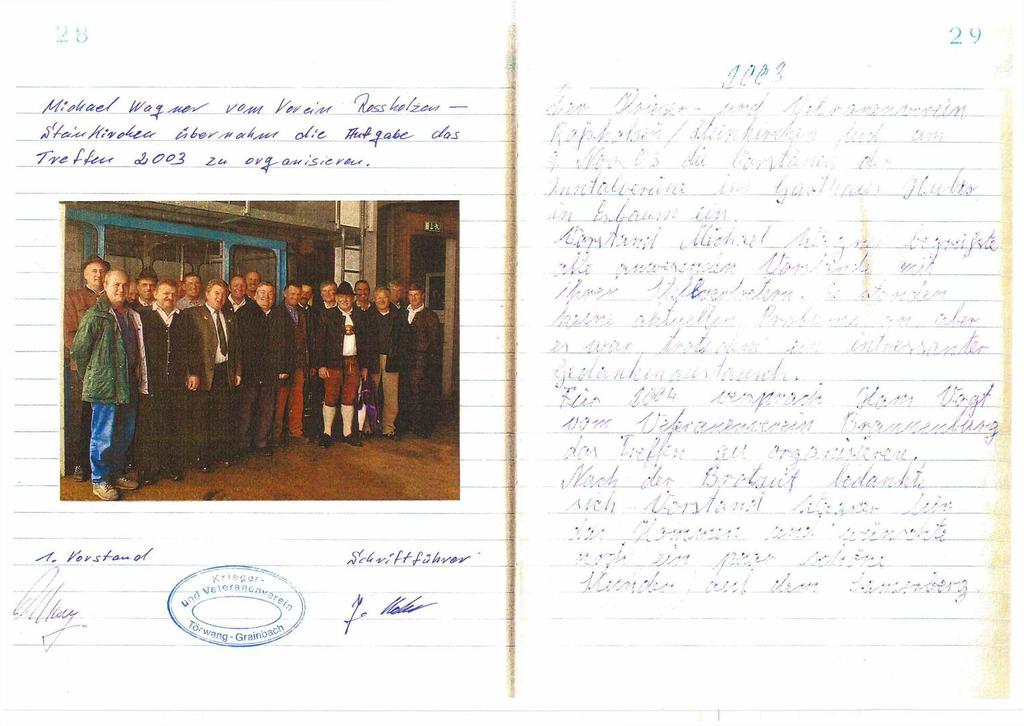 28
Michael Wagner vom Verein Rossholzen -
Steinkirchen übernahm die Aufgabe das
Treffen 2003 zu organisieren.
1. Vorstand
Schriftführer
Krieger-
und Veteranenverein
Törwang-Grainbach
29
2003
Der Krieger- und Veteranenverein
Roßholzen / Steinkirchen lud am
9. Nov. 03 die Vorstände der
Inntalvereine ins Gasthaus Huber
in Eßbaum ein.
Vorstand Michael Wagner begrüßte
alle anwesenden Vorstände mit
ihren Stellvertretern. Es standen
keine aktuellen Probleme an, aber
es war trotzdem ein intressanter
Gedankenaustausch.
Für 2004 versprach Hans Vogt
vom Veteranenverein Brannenburg
das Treffen zu organisieren.
Nach der Brotzeit bedankte
sich Vorstand Wagner fürs
das Kommen und wünschte
noch ein paar schöne
Stunden auf dem Samerberg.